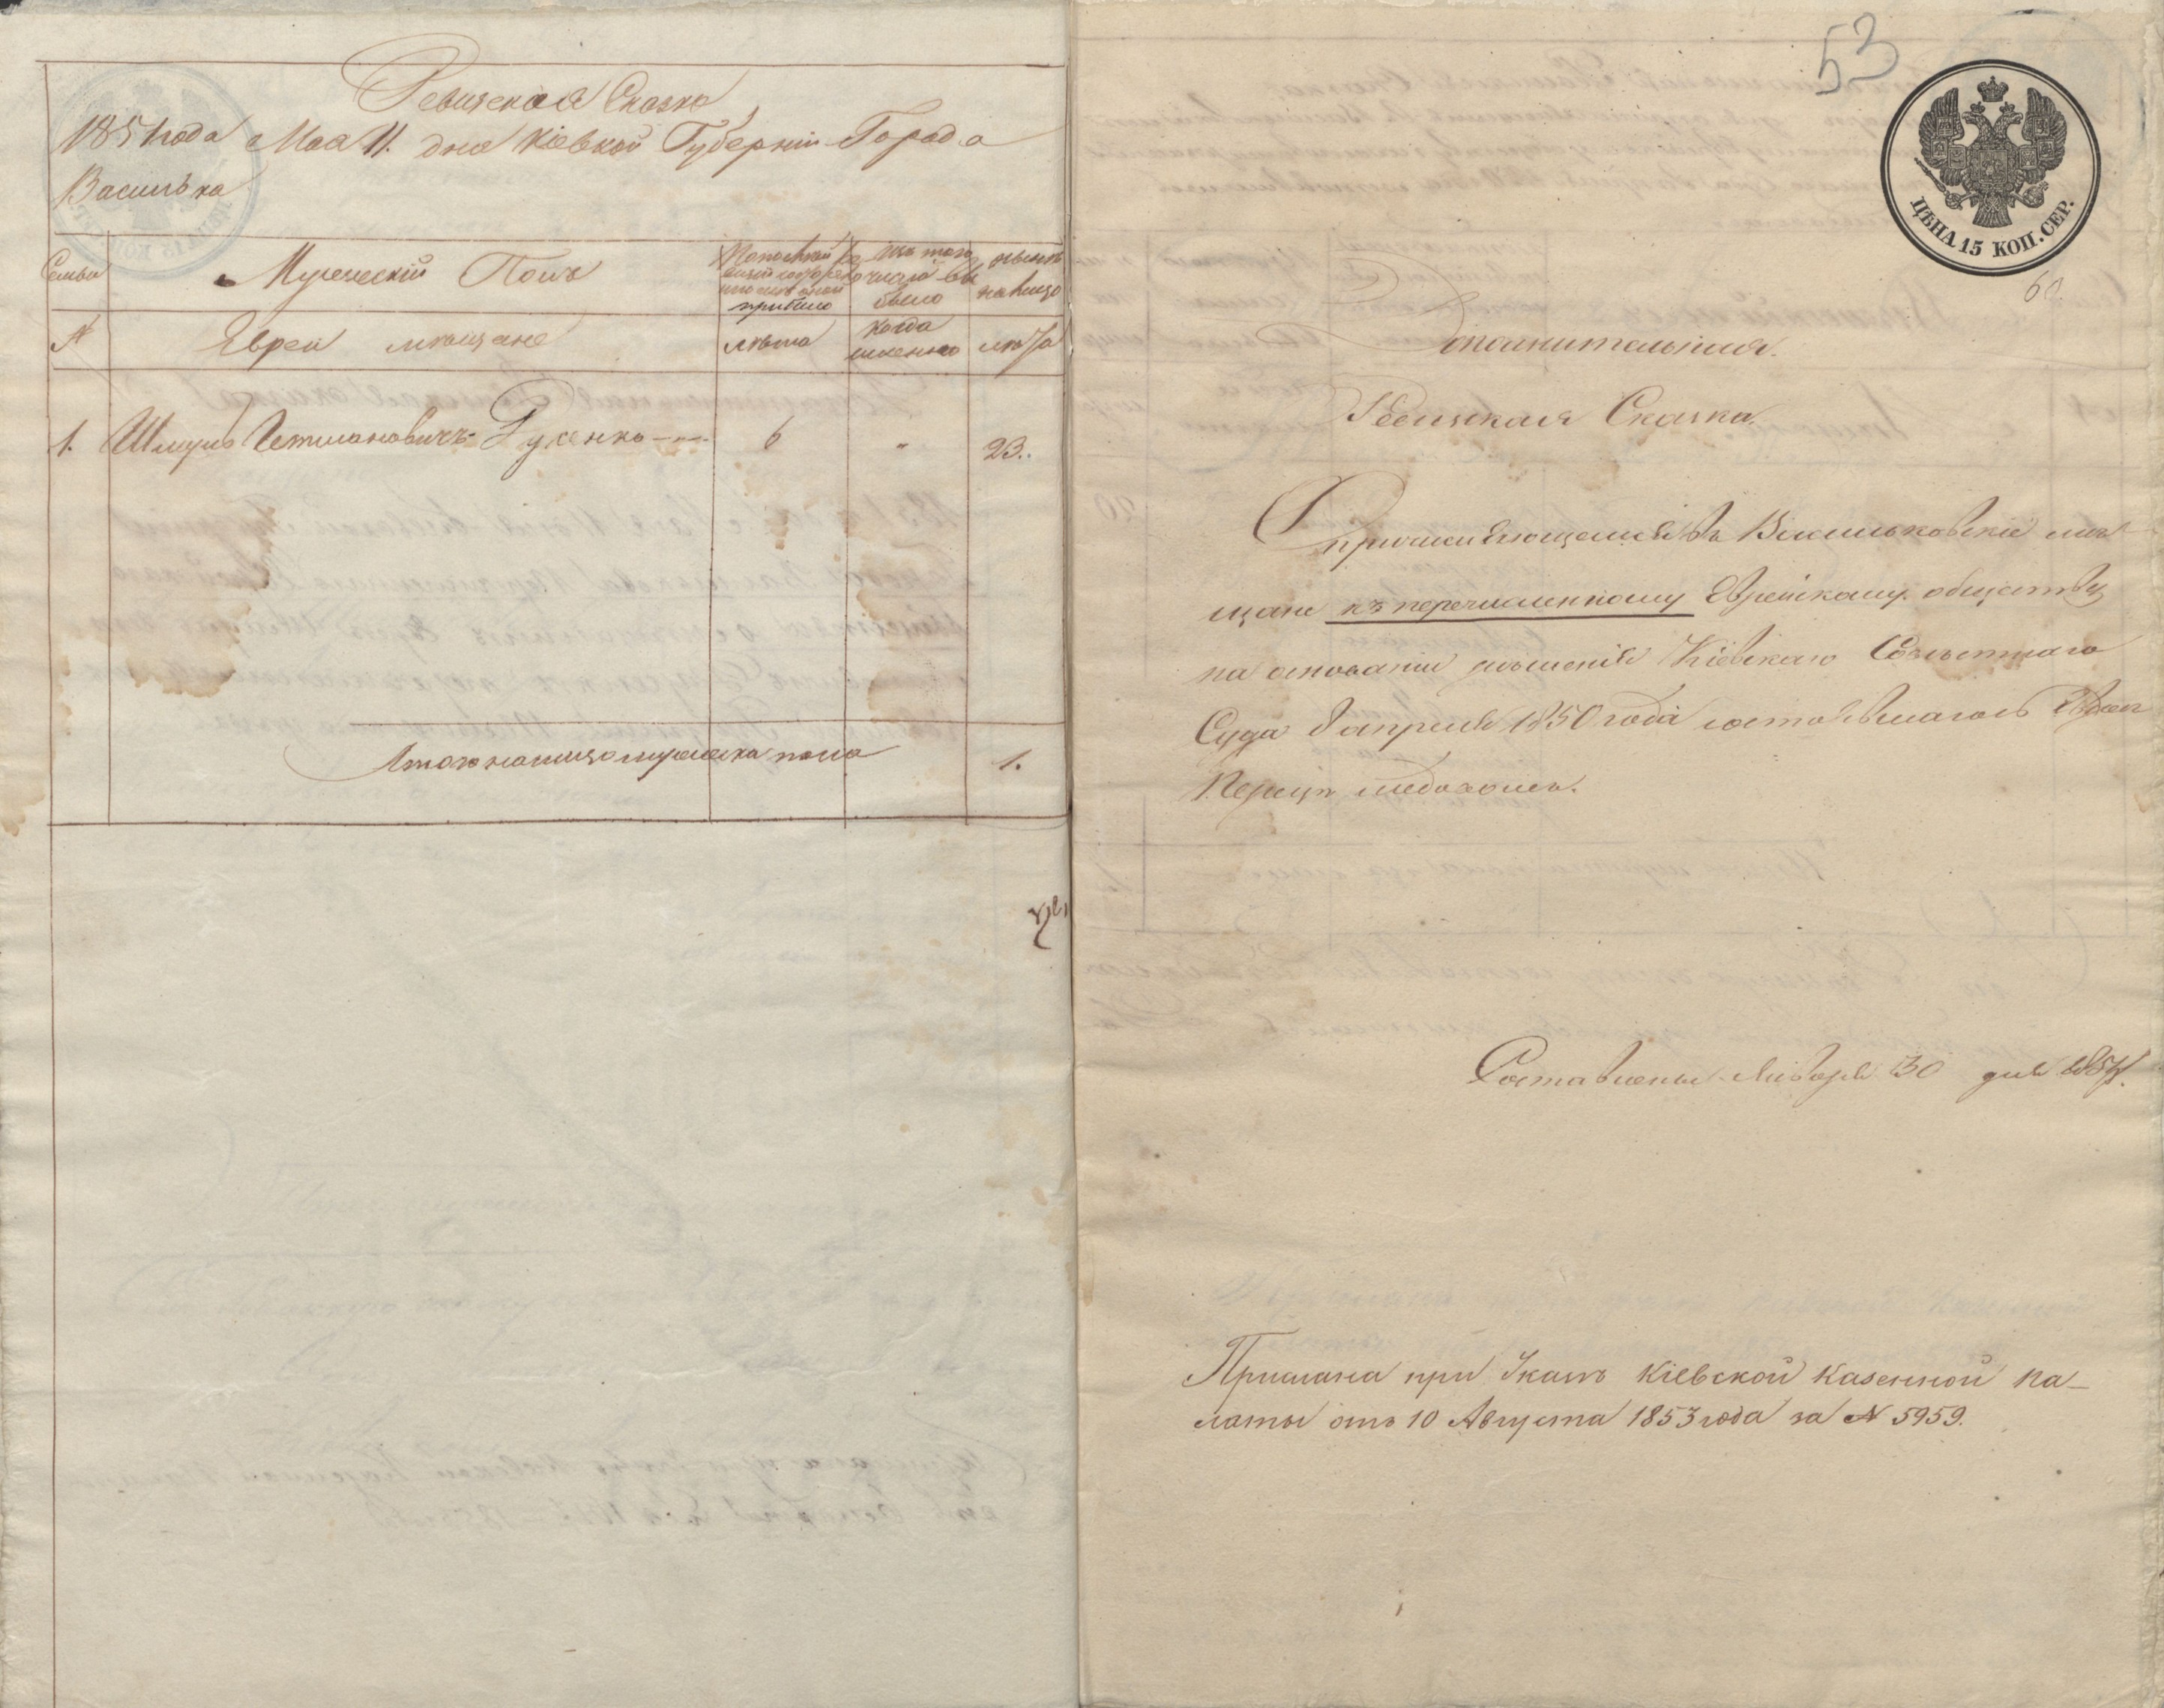 Ревизская Сказка
1851 года Мая 11. дня Кіевской Губерніи Города
Василькова
Семьи
Мужескій Полъ
прибыло
Изъ того
числа вы
было
нынѣ
на лицо
№
Евреи мѣщане
лѣта
когда
именно
лѣта
1. Шмуль Гетмановичъ Руженко 6 " 23.
Итого на лицо мужеска пола 1.
53
ЦѢНА 15 КОП. СЕР.
60.
Дополнительная.
Ревизская Сказка
О причисляющемся въ Васильковскіе мѣ-
щане къ перечисленному Еврейскому обществу
на основаніи рѣшенія Кіевскаго Совѣстнаго
Суда 8 апреля 1850 года состоявшагось
Составлена Января 30 дня
Прислана при Указѣ Кіевской Казенной Па-
латы отъ 10 Августа 1853 года за № 5959.